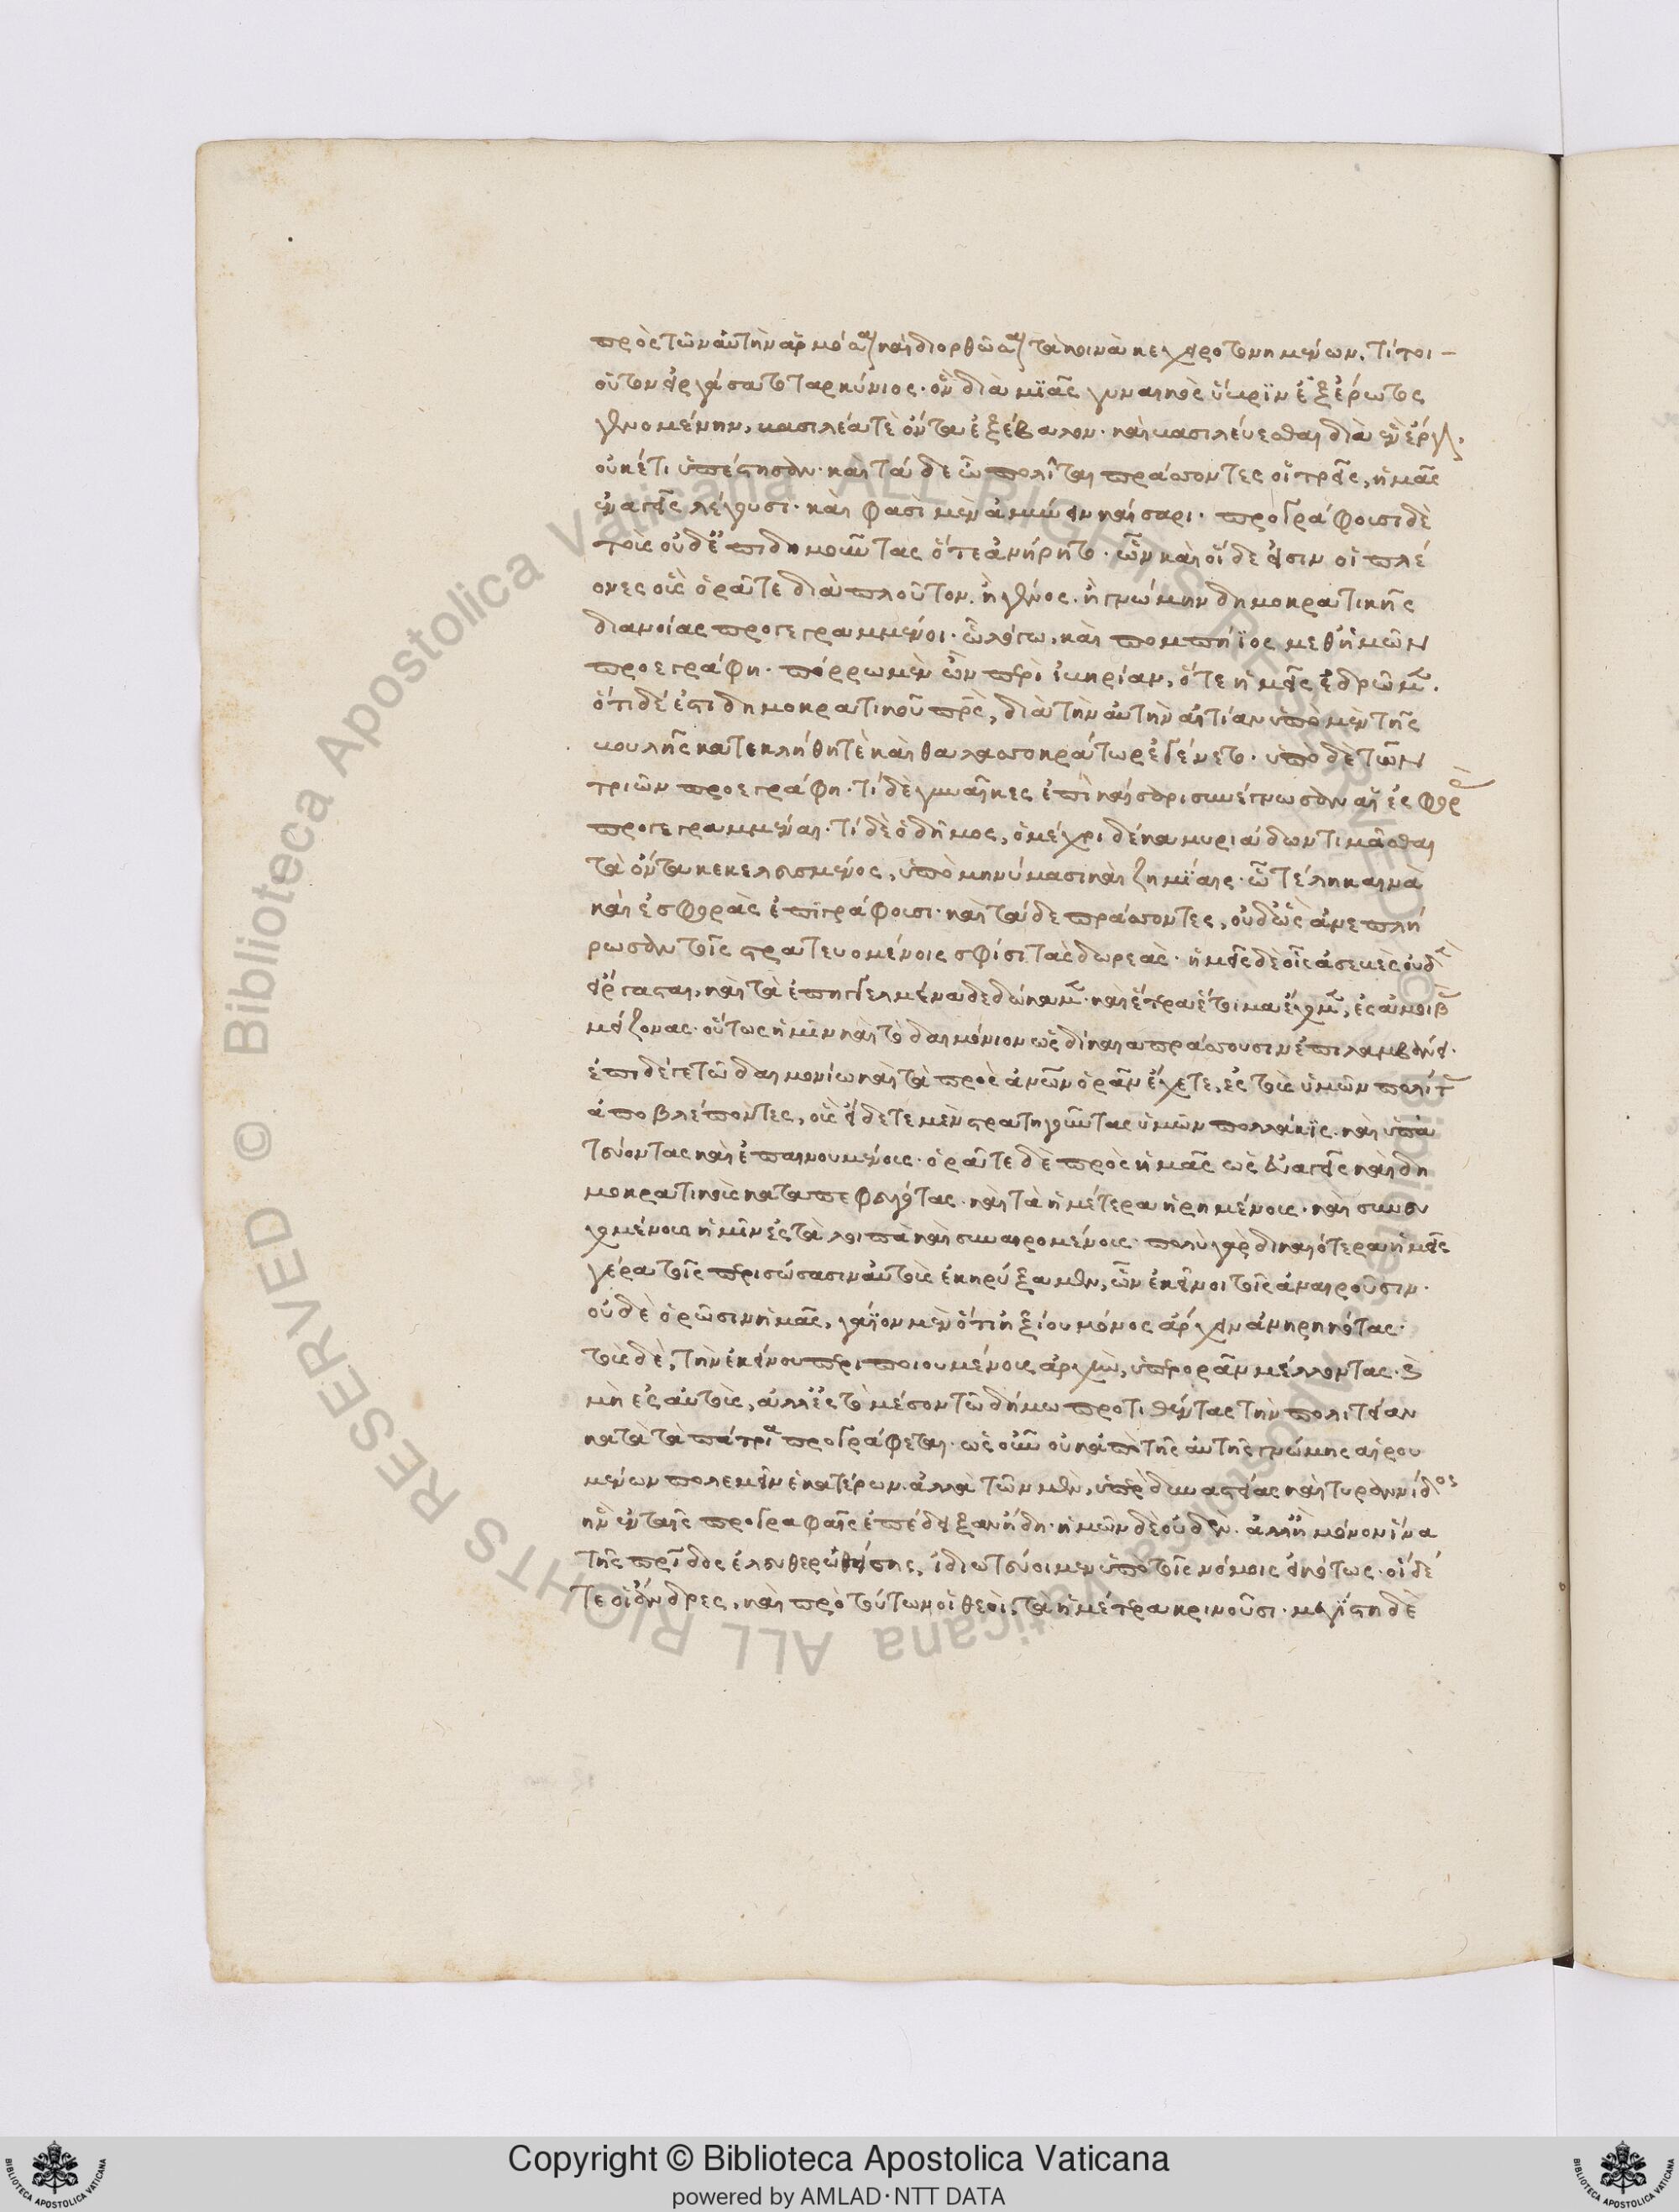 πρὸς τῶν αὐτὴν ἁρμόσαι καὶ διορθῶσαι τὰ κοινὰ κεχειροτονημένων. τί τοι-
οῦτον εἰργάσατο ταρκύνιος. ὃν διὰ μϊᾶς γυναικὸς ὕβρϊν ἐξ ἔρωτος
γενομένην, βασιλέα τὲ ὄντα ἐξέβαλον. καὶ βασιλεύεσθαι διὰ ἓν ἔργον
οὐκέτι ὑπέστησαν. καὶ τάδε ὦ πολῖται πράσσοντες οἱ τρεῖς, ἡμᾶς
ἐναγεῖς λέγουσι. καὶ φασὶ μὲν ἀμύνειν καίσαρι. προγράφουσι δὲ
τοὺς οὐδ' ἐπιδημοῦντας ὅτε ἀνήρητο. ὧν καὶ οἵδε εἰσιν οἱ πλέ
ονες οὓς ὁρᾶτε διὰ πλοῦτον. ἢ γένος. ἢ γνώμην δημοκρατικῆς
διανοίας προγεγραμμένοι. ᾧ λόγω, καὶ πομπήϊος μεθ' ἡμῶν
προεγράφη. πόρρω μὲν ὢν περὶ ἰβηρίαν, ὅτε ἡμεῖς ἐδρῶμεν.
ὅτι δέ ἐστι δημοκρατικοῦ πατρὸς, διὰ τὴν αὐτὴν αἰτίαν ὑπὸ μὲν τῆς
βουλῆς κατεκλήθη τὲ καὶ θαλασσοκράτωρ ἐγένετο. ὑπὸ δὲ τῶν
τριῶν προεγράφη. τί δὲ γυναῖκες ἐπὶ καίσαρι συνέγνωσαν αἳ ἐς φορὰς
προγεγραμμέναι. τί δὲ ὁ δῆμος, ὁ μέχρι δέκα μυριάδων τιμᾶσθαι
τὰ ὄντα κεκελευσμένος, ὑπὸ μηνύμασι καὶ ζημϊαις. ᾧ τέλη καινὰ
καὶ ἐσφορὰς ἐπϊγράφουσι. καὶ τάδε πράσσοντες, οὐδ' ὣς ἀνεπλή
ρωσαν τοῖς στρατευομένοις σφίσι τὰς δωρεάς. ἡμεῖς δὲ οἷς ἀσεβὲς οὐδὲν
εἴργασται, καὶ τὰ ἐπηγγελμένα δεδώκαμεν. καὶ ἕτερα ἕτοιμα ἔχομεν, ἐς ἀμοιβὰς
μείζονας. οὕτως ἡμῖν καὶ τὸ δαιμόνιον ὡς δίκαια πράσσουσιν ἐπιλαμβάνει.
ἐπὶ δέ γε τῶ δαιμονίω καὶ τὰ πρὸς ἀνθρώπων ὁρᾶν ἔχετε, ἐς τοὺς ὑμῶν πολίτας
ἀποβλέποντες, οὓς εἴδετε μὲν στρατηγοῦντας ὑμῶν πολλάκις. καὶ ὑπα
τεύοντας καὶ ἐπαινουμένους. ὁρᾶτε δὲ πρὸς ἡμᾶς ὡς εὐαγεῖς καὶ δη
μοκρατικοὺς καταπεφευγότας. καὶ τὰ ἡμέτερα ἡρημένους. καὶ συνευ
χομένους ἡμῖν ἐς τὰ λοιπὰ καὶ συναιρομένους. πολὺ γὰρ δικαιότερα ἡμεῖς
γέρα τοῖς περισώσασιν αὐτοὺς ἐκηρύξαμεν, ὧν ἐκεῖνοι τοῖς ἀναιροῦσιν.
οὐδὲ ὁρῶσιν ἡμᾶς, γάϊον μὲν ὅτι ἠξίου μόνος ἄρχειν ἀνηρηκότας.
τοὺς δὲ, τὴν ἐκείνου περιποιουμένους ἀρχὴν, ὑπερορᾶν μέλλοντας. καὶ
μὴ ἐς αὑτοὺς, ἀλλ' ἐς τὸ μέσον τῶ δήμω προτιθέντας τὴν πολιτείαν
κατὰ τὰ πάτρια προγράφεται. ὡς οὖν οὐκ ἀπὸ τῆς αὐτῆς γνώμης αἱρου
μένων πολεμεῖν ἑκατέρων. ἀλλὰ τῶν μὲν, ὑπὲρ δυναστείας καὶ τυραννίδος
ἣν ἐν ταῖς προγραφαῖς ἐπέδειξαν ἤδη. ἡμῶν δὲ οὐδὲν. ἀλλ' ἢ μόνον ἵνα
τῆς πατρίδος ἐλευθερωθείσης, ἰδιωτεύοιμεν ὑπὸ τοῖς νόμοις εἰκότως. οἵδέ
τε οἱ ἄνδρες, καὶ πρὸ τούτων οἱ θεοὶ, τὰ ἡμέτερα κρινοῦσι. μεγίστη δὲ